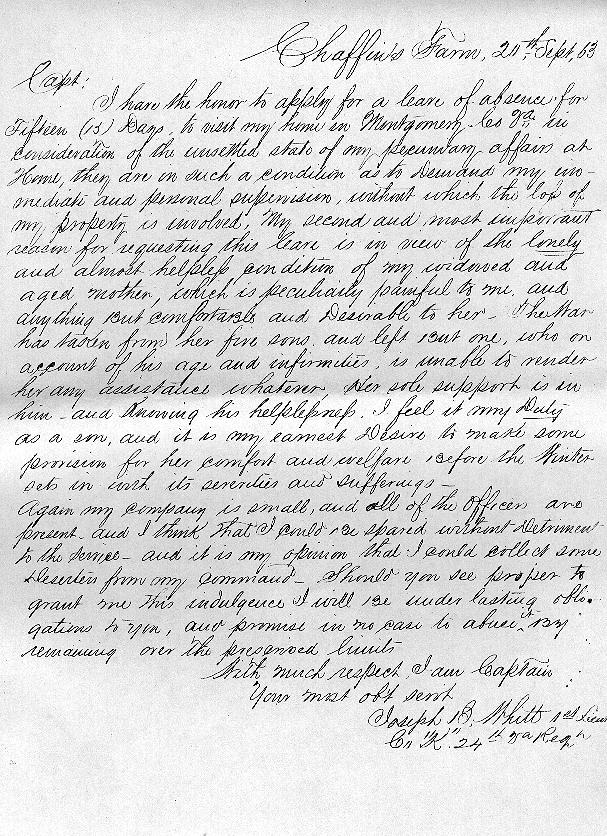 Chaffin's Farm, 20th Sept, 63
Capt:
I have the honor to apply for a leave of absence for
Fifteen (15) Days, to visit my home in Montgomery Co Va. in
consideration of the unsettled state of my pecuniary affairs at
Home, they are in such a condition as to Demand my im-
mediate and personal supervision, without which the loss of
my property is involved, My second and most important
reason for requesting this leave is in view of the lonely
and almost helpless condition of my widowed and
aged mother, which is peculiarly painful to me, and
anything But comfortable and Desirable to her - The War
has taken from her five sons, and left But one, who on
account of his age and infirmities, is unable to render
her any assistance whatever, Her sole support is in
him - and Knowing his helplessness, I feel it my Duty
as a son, and it is my earnest Desire to make some
provision for her comfort and welfare Before the Winter
sets in with its severities and sufferings -
Again my company is small, and all of the Officers are
present - and I think that I could Be spared without Detriment
to the service - and it is my opinion that I could collect some
Deserters from my command - Should you see proper to
grant me this indulgence I will Be under lasting obli-
gations to you, and promise in no case to abuse it By
remaining over the prescribed limits
With much respect, I am Captain
Your most obt servt
Joseph B. Whitt 1st Lieu
Co "K" 24th Va Regt